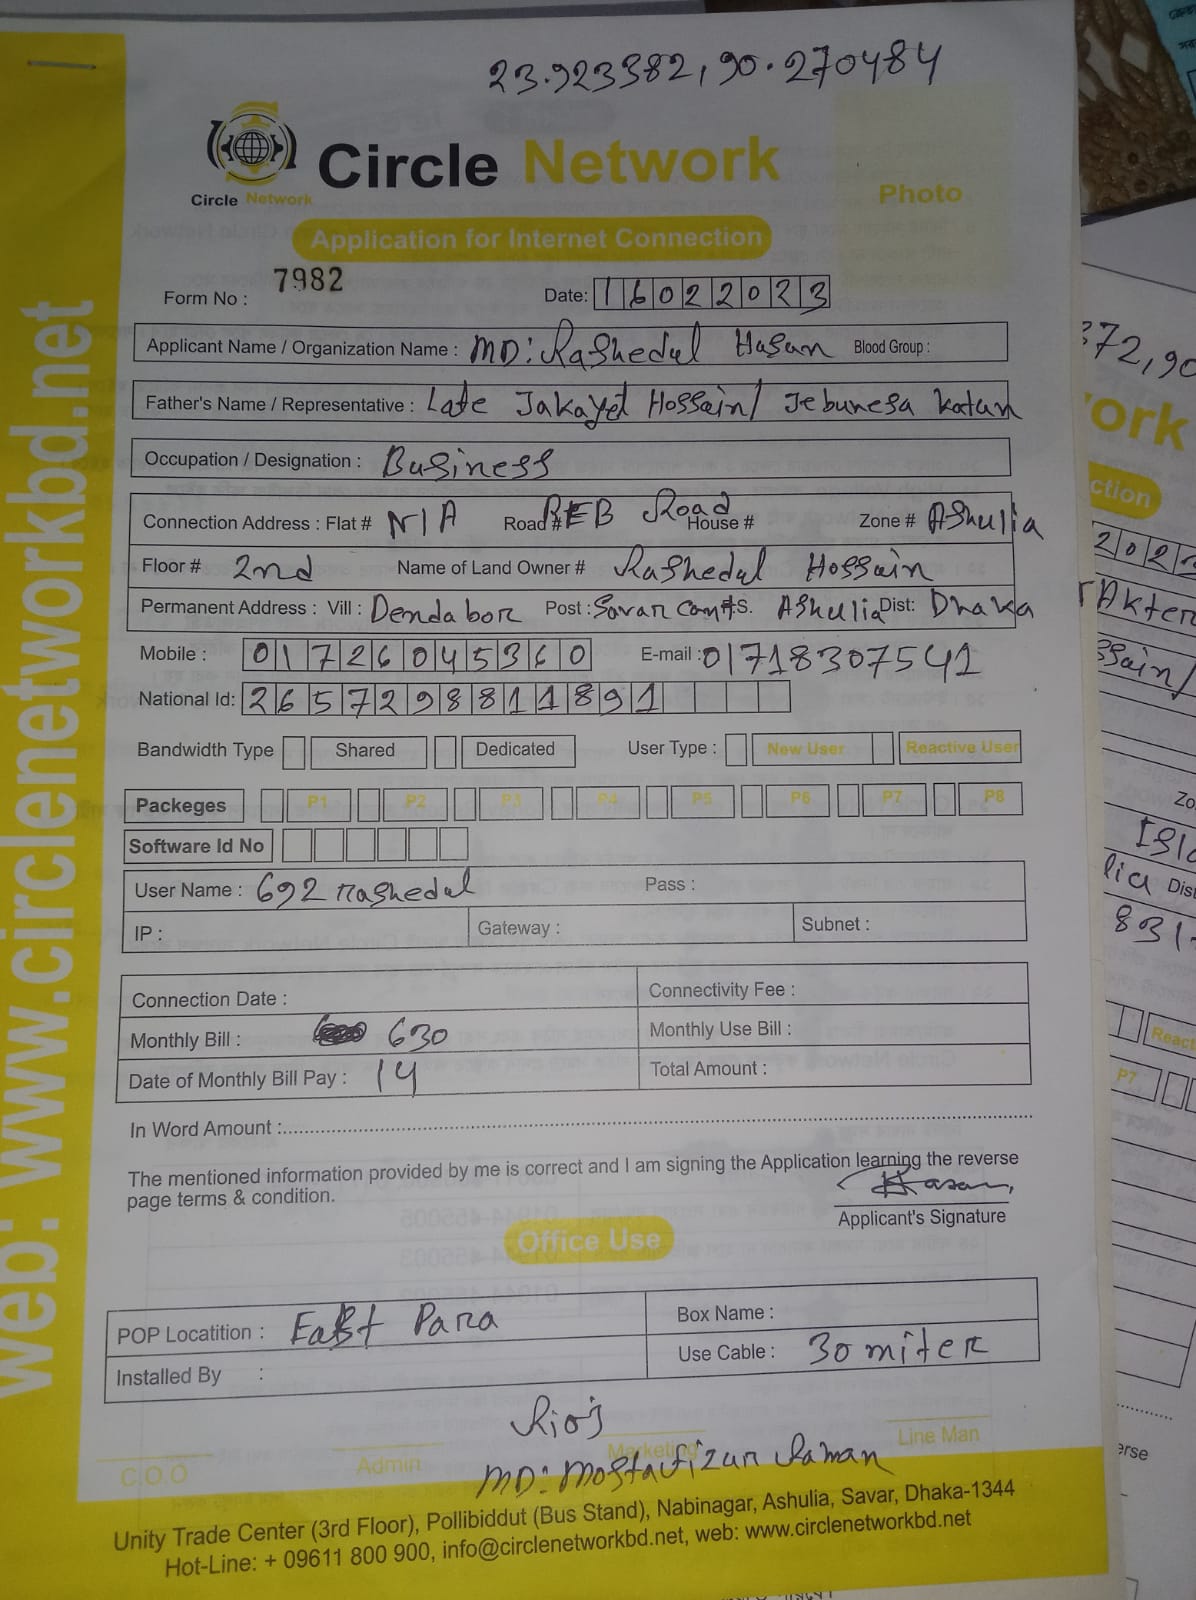 23.923382, 90.270484
Circle Network
Circle Network
Photo
Application for Internet Connection
Form No : 7982 Date: 16022023
Applicant Name / Organization Name : MD: Rashedul Hasan Blood Group :
Father's Name / Representative : Late Jakayet Hossain / Jebunesa Katun
Occupation / Designation : Business
Connection Address : Flat # N/A Road # REB Road House # Zone # Ashulia
Floor # 2nd Name of Land Owner # Rashedul Hossain
Permanent Address : Vill : Dendabor Post : Savar Cant P.S. Ashulia Dist: Dhaka
Mobile : 01726045360 E-mail : 01718307541
National Id: 2657298811891
Bandwidth Type Shared Dedicated User Type : New User Reactive User
Packeges P1 P2 P3 P4 P5 P6 P7 P8
Software Id No
User Name : 692 rashedul Pass :
IP : Gateway : Subnet :
Connection Date : Connectivity Fee :
Monthly Bill : 630 Monthly Use Bill :
Date of Monthly Bill Pay : 14 Total Amount :
In Word Amount :
The mentioned information provided by me is correct and I am signing the Application learning the reverse
page terms & condition.
Hasan
Applicant's Signature
Office Use
POP Locatition : East Para Box Name :
Installed By : Use Cable : 30 miter
C.O.O Admin Marketing Line Man
MD: Mostafizur Raman
Unity Trade Center (3rd Floor), Pollibiddut (Bus Stand), Nabinagar, Ashulia, Savar, Dhaka-1344
Hot-Line: + 09611 800 900, info@circlenetworkbd.net, web: www.circlenetworkbd.net
web: www.circlenetworkbd.net